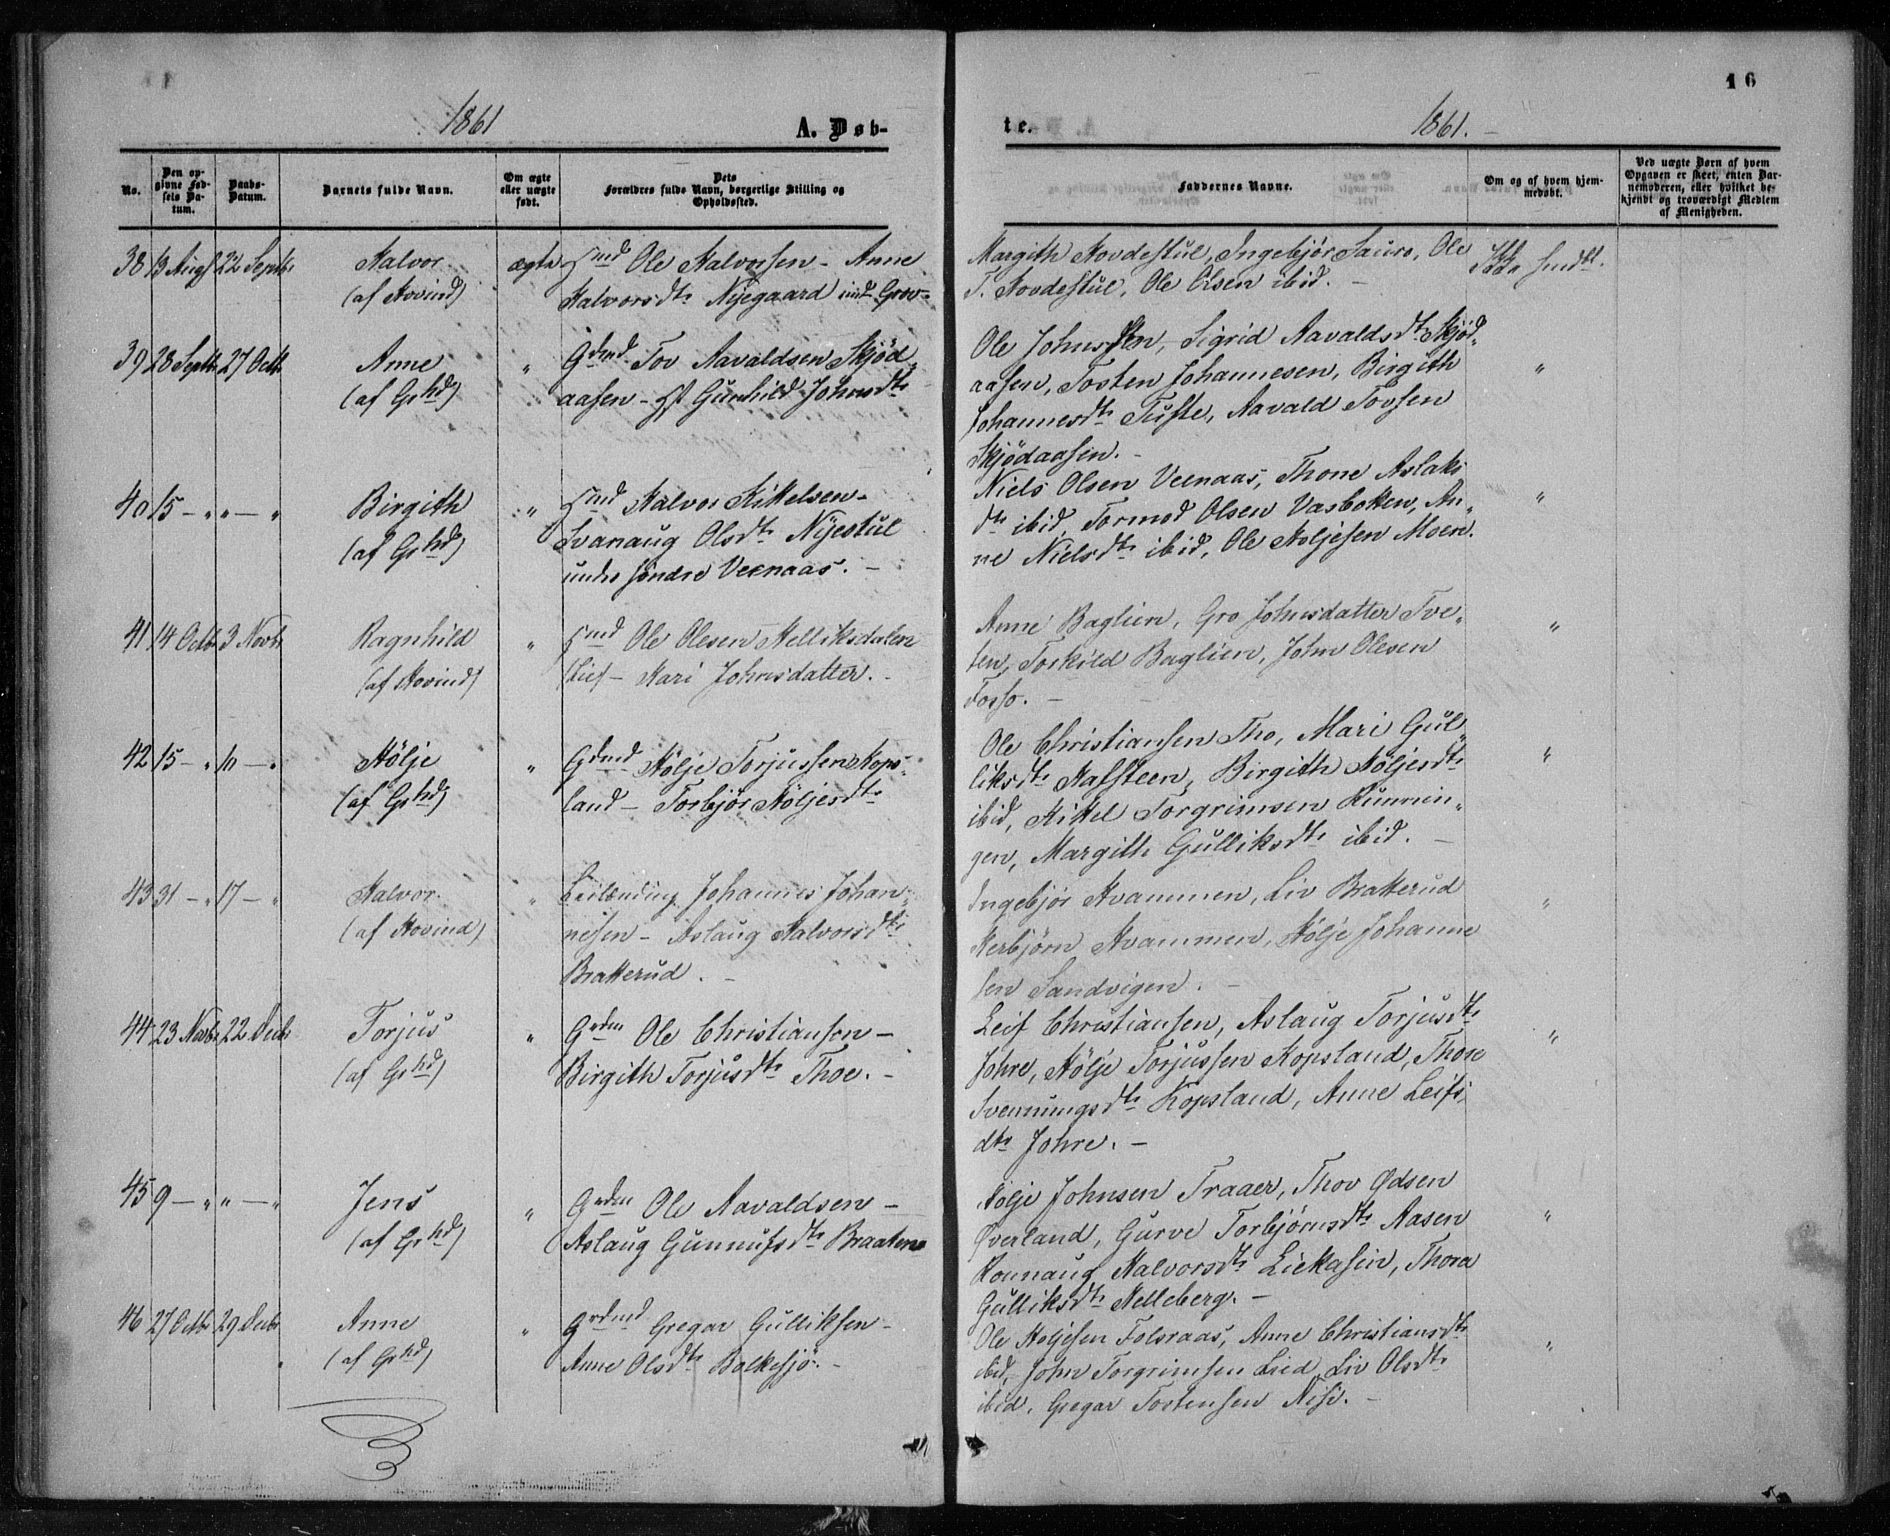 16
1861
A. Døb-
te.
1861.
No.
Den opgivne Fødsels Datum.
Daabs-Datum.
Barnets fulde Navn.
Om ægte eller uægte født.
Dets Forældres fulde Navn, borgerlige Stilling og Opholdssted.
Faddernes Navne.
Om og af hvem hjemmedøbt.
Ved uægte Børn af hvem Opgaven er skeet, enten Barnemoderen, eller hvilket bekjendt og troværdigt Medlem af Menigheden.
38 13 Augt 22 Septr Halvor ægte Hmd Ole Halvorsen - Anne
(af Hovind) Halvorsdtr Nyegaard und. Grov-
Margith Hovdestul, Ingebjör Sauro, Ole
T. Hovdestul, Ole Olsen ibid. -
Ikke hmdbt.
39 28 Septr 27 Octr Anne " Gdmd Tov Aavaldsen Skjöd-
(af Grhd) aasen - Gunhild Johnsdtr
Ole Johnsen, Sigrid Aavaldsdtr Skjöd-
aasen, Tosten Johannesen, Birgith
Johannesdtr Tufte, Aavald Tovsen
Skjödaasen. -
"
40 15 - " " - " Birgith " Hmd Halvor Kittelsen -
(af Grhd) Svanaug Olsdtr Nyestul
under söndre Veenaas. -
Niels Olsen Veenaas, Thone Aslaks
dtr ibid, Tormod Olsen Vasbotten, An-
ne Nielsdtr ibid, Ole Höljesen Moen.
"
41 14 Octb 3 Novbr Ragnhild " Hmd Ole Olesen Helliksdalen
(af Hovind) Kari Johnsdatter. -
Anne Baglien, Gro Johnsdatter Tve-
ten, Torkild Baglien, John Olesen
Fosso. -
"
42 15 - " 10 - " Hölje " Gdmd Hölje Torjussen Kops-
(af Grhd) land - Torbjör Höljesdtr
Ole Christiansen Tho, Mari Gul-
liksdtr Kalsteen, Birgith Höljesdtr
ibid, Kittel Torgrimsen Runnin-
gen, Margith Gulliksdtr ibid. -
"
43 31 - " 17 - " Halvor " Leilending Johannes Johan-
(af Hovind) nesen - Aslaug Halvorsdtr
Bratterud. -
Ingebjör Kvammen, Liv Bratterud
Herbjörn Kvammen, Hölje Johanne
sen Sandvigen. -
"
44 23 Novbr 22 Decbr Torjus " Grdm Ole Christiansen -
(af Grhd) Birgith Torjusdtr Thoe. -
Leif Christiansen, Aslaug Torjusdtr
Johre, Hölje Torjussen Kopsland, Thore
Svenningsdtr Kopsland, Anne Leifs-
dtr Johre. -
"
45 9 - " " - " Jens " Grdm Ole Aavaldsen -
(af Grhd) Aslaug Gunnufsdtr Braaten
Hölje Johnsen Traaer, Thov Odsen
Øverland, Gurve Torbjörnsdtr Aasen
Ronnaug Halvorsdtr Liekasin, Thora
Gulliksdtr Helleberg. -
"
46 27 Octbr 29 Decbr Anne " Grdmd Gregar Gulliksen -
(af Grhd) Anne Olsdtr Bolkesjö. -
Ole Höljesen Folsraas, Anne Christiansdtr
ibid, John Torgrimsen Lied, Liv Olsdtr
ibid, Gregar Tostensen Nisi. -
"